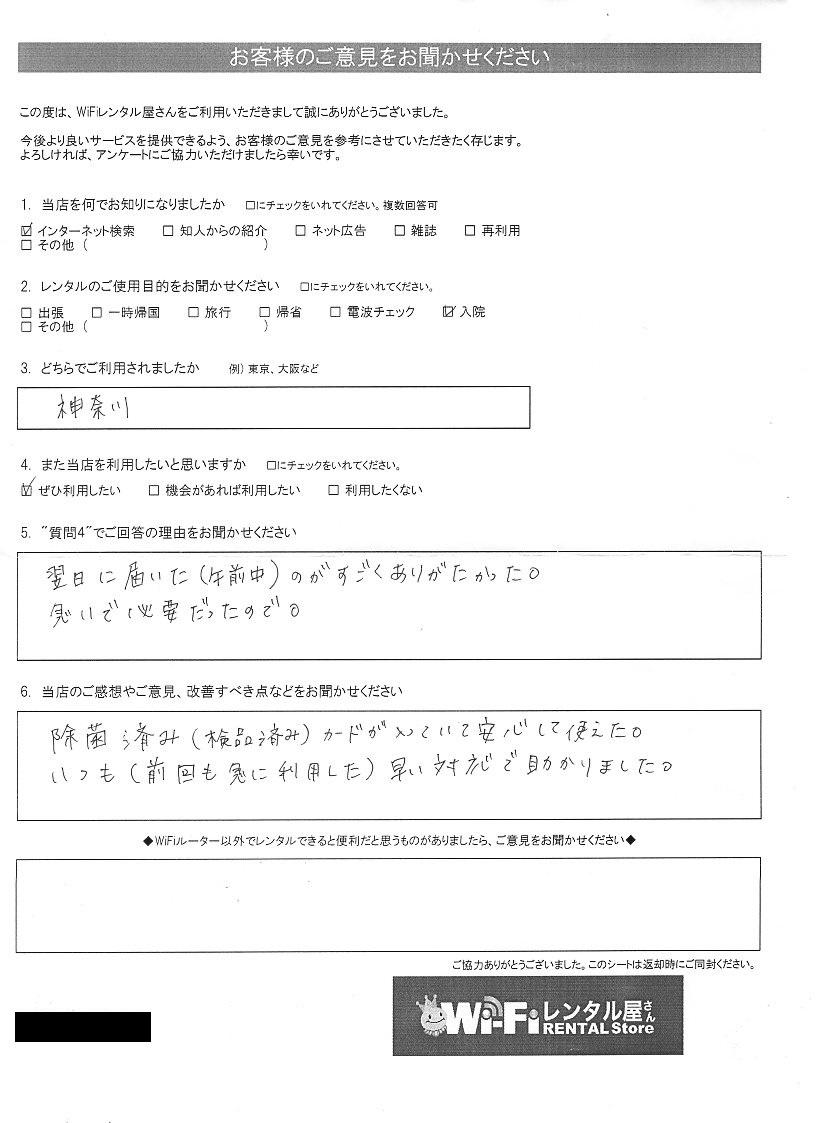 お客様のご意見をお聞かせください
この度は、WiFiレンタル屋さんをご利用いただきまして誠にありがとうございました。
今後より良いサービスを提供できるよう、お客様のご意見を参考にさせていただきたく存じます。
よろしければ、アンケートにご協力いただけましたら幸いです。
1. 当店を何でお知りになりましたか □にチェックをいれてください。複数回答可
☑ インターネット検索 □ 知人からの紹介 □ ネット広告 □ 雑誌 □ 再利用
□ その他 ( )
2. レンタルのご使用目的をお聞かせください □にチェックをいれてください。
□ 出張 □ 一時帰国 □ 旅行 □ 帰省 □ 電波チェック ☑ 入院
□ その他 ( )
3. どちらでご利用されましたか 例) 東京、大阪など
神奈川
4. また当店を利用したいと思いますか □にチェックをいれてください。
☑ ぜひ利用したい □ 機会があれば利用したい □ 利用したくない
5. "質問4"でご回答の理由をお聞かせください
翌日に届いた(午前中)のがすごくありがたかった。
急いで必要だったので。
6. 当店のご感想やご意見、改善すべき点などをお聞かせください
除菌済み(検品済み)カードが入っていて安心して使えた。
いつも(前回も急に利用した)早い対応で助かりました。
◆WiFiルーター以外でレンタルできると便利だと思うものがありましたら、ご意見をお聞かせください◆
ご協力ありがとうございました。このシートは返却時にご同封ください。
Wi-Fiレンタル屋さん
RENTAL Store